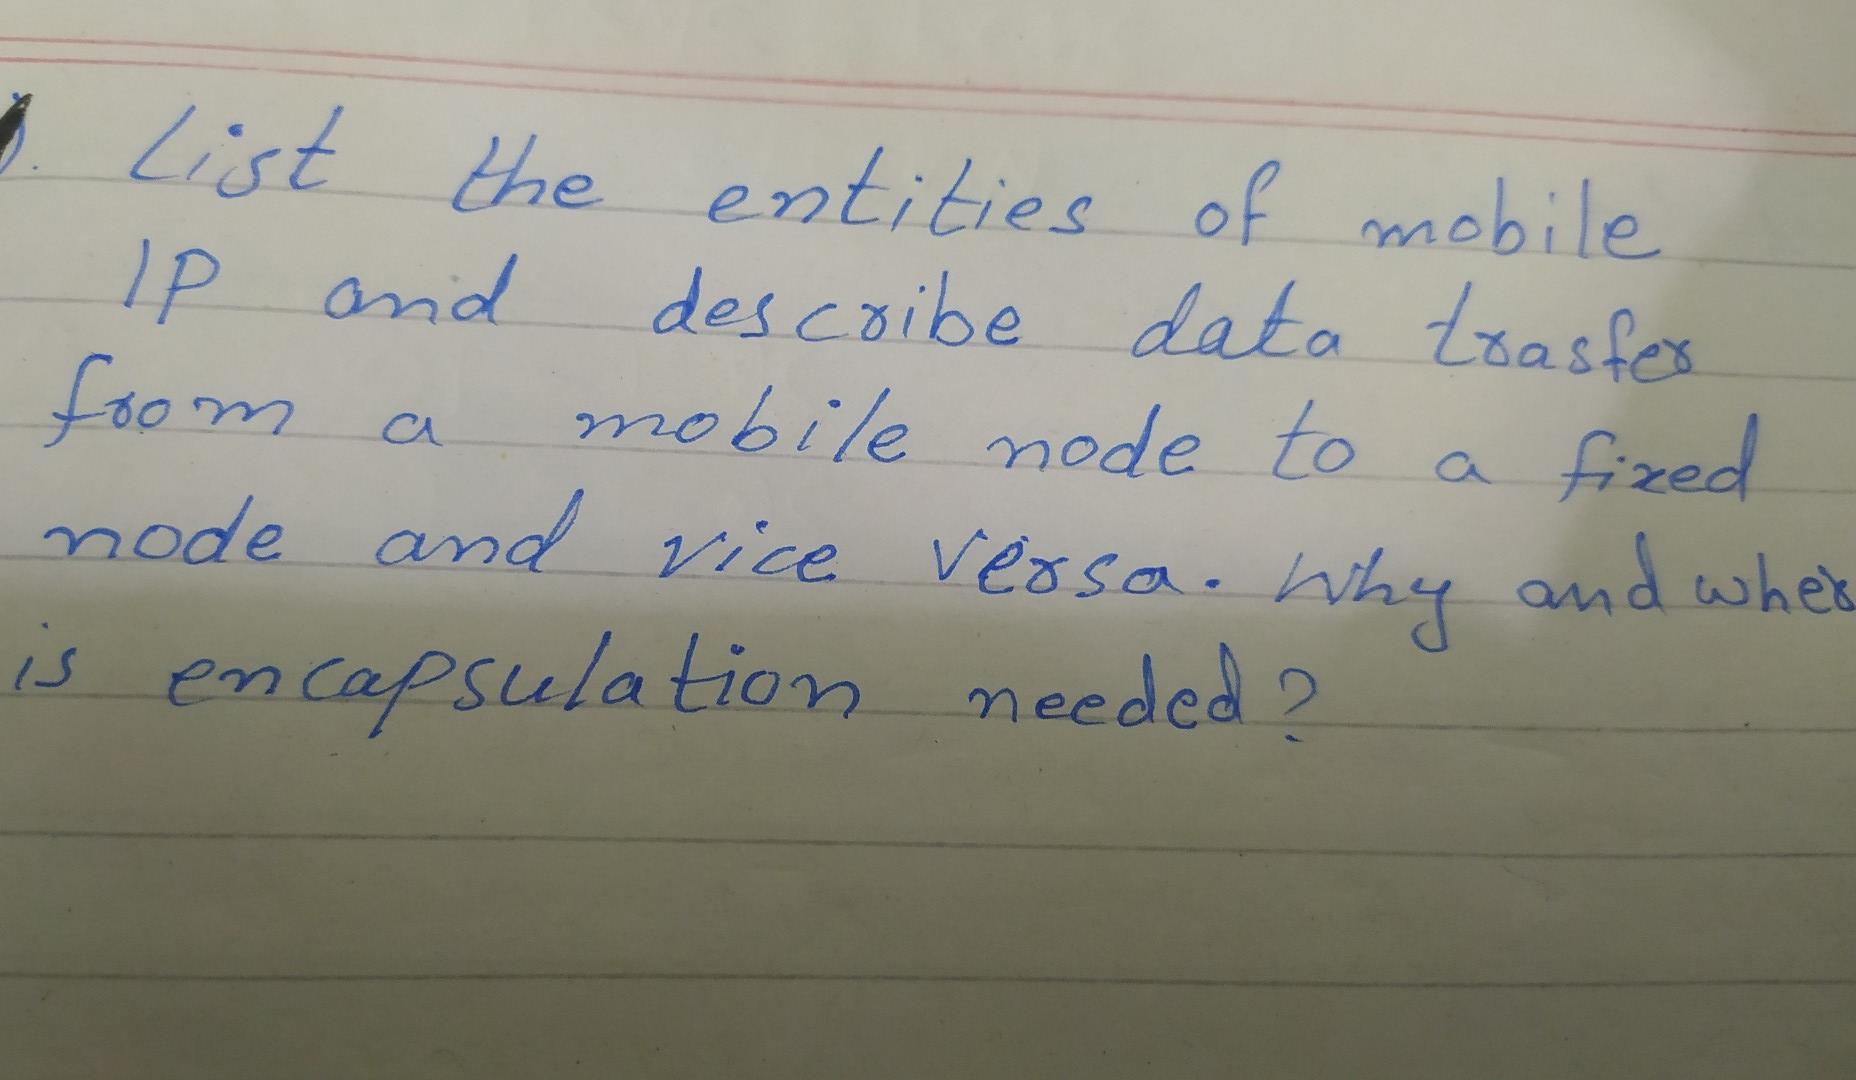 1. List the entities of mobile
IP and describe data trasfer
from a mobile node to a fixed
node and vice versa. Why and wher
is encapsulation needed?